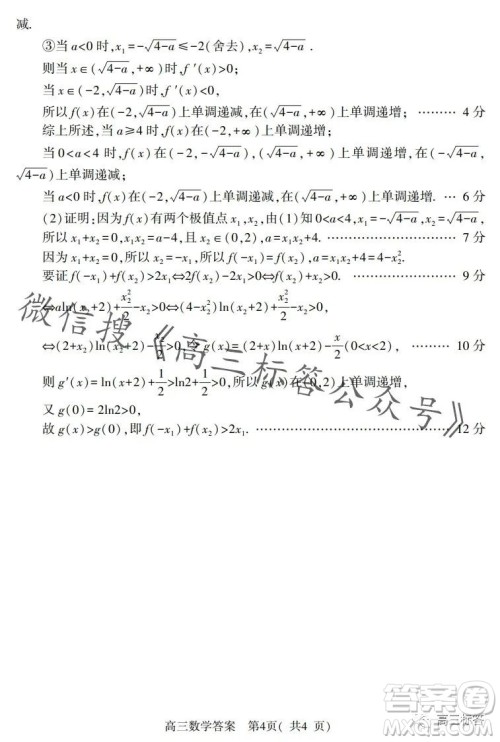 减.
③当 a<0 时,x₁=-√(4-a)≤-2(舍去),x₂=√(4-a) .
则当 x∈(√(4-a),+∞)时,f ′(x)>0;
当 x∈(-2,√(4-a))时,f ′(x)<0,
所以 f(x)在(-2,√(4-a))上单调递减,在(√(4-a),+∞)上单调递增; ……… 4 分
综上所述,当 a≥4 时,f(x)在(-2,+∞)上单调递增;
当 0<a<4 时,f(x)在(-2,-√(4-a)),(√(4-a),+∞)上单调递增,在(-√(4-a),
√(4-a))上单调递减;
当 a<0 时,f(x)在(-2,√(4-a))上单调递减,在(√(4-a),+∞)上单调递增. … 6 分
(2)证明:因为 f(x)有两个极值点 x₁,x₂,由(1)知 0<a<4,x₁=-√(4-a),x₂=√(4-a),
所以 x₁+x₂=0,x₁x₂=a-4,且 x₂∈(0,2),a=x₁x₂+4. ……… 7 分
因为 x₁+x₂=0,所以 x₁=-x₂,所以 a=x₁x₂+4=4-x₂².
要证 f(-x₁)+f(x₂)>2x₁⇔2f(x₂)>-2x₂⇔f(x₂)+x₂>0. ……… 9 分
⇔aln(x₂+2)+x₂²/2-x₂>0⇔(4-x₂²)ln(x₂+2)+x₂²/2-x₂>0,
⇔(2+x₂)ln(x₂+2)-x₂/2>0,令 g(x)=(x+2)ln(x+2)-x/2(0<x<2), ……… 10 分
则 g′(x)=ln(x+2)+1/2>ln2+1/2>0,所以 g(x)在(0,2)上单调递增,
又 g(0)= 2ln2>0,
故 g(x)>g(0),即 f(-x₁)+f(x₂)>2x₁. ……… 12 分
微信搜《高三标答公众号》
高三数学答案 第4页( 共4 页)
答案圈
高三标答